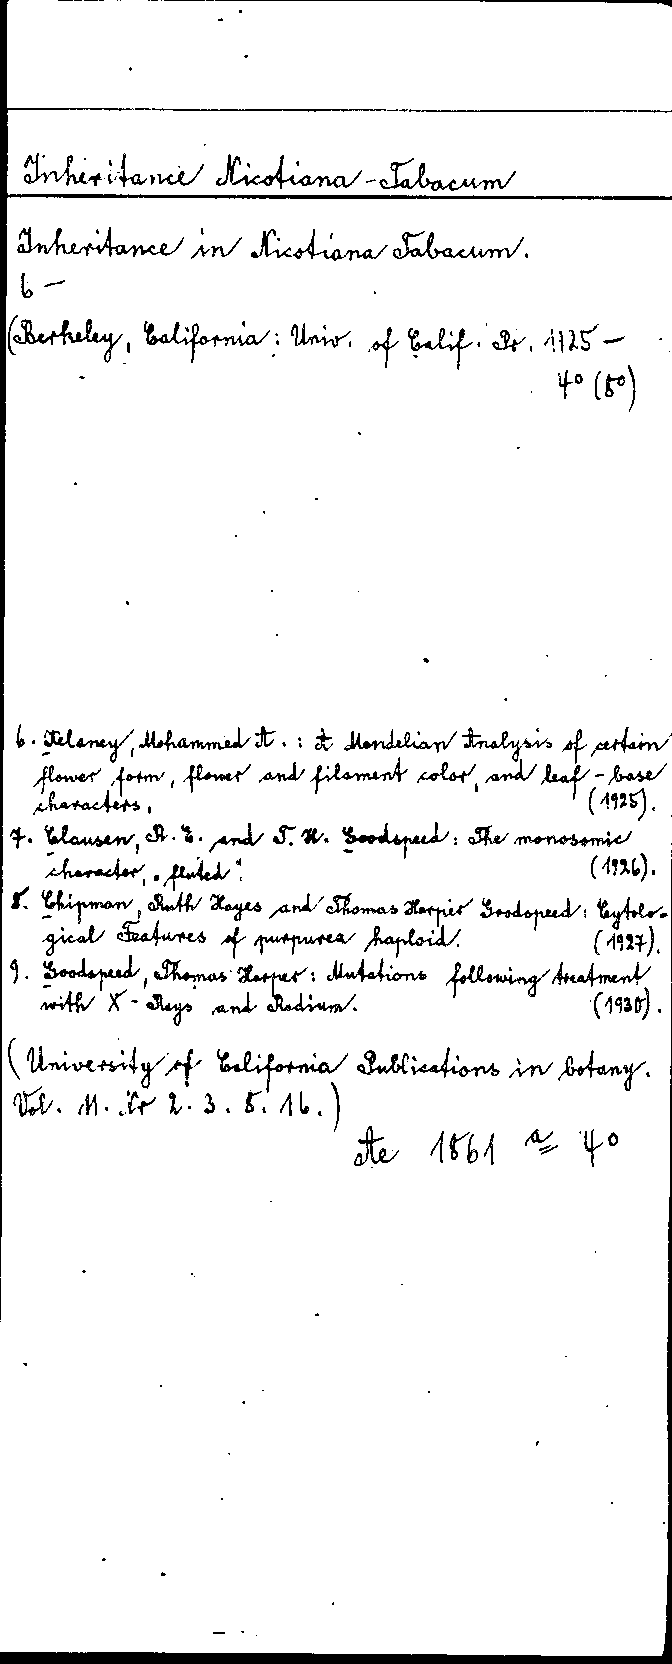 Inheritance Nicotiana-Tabacum
Inheritance in Nicotiana Tabacum.
6 —
(Berkeley, California: Univ. of Calif. Pr. 1925 —
4° (8°)
6. Kelaney, Mohammed A. : A Mendelian Analysis of certain
flower form, flower and filament color, and leaf-base
characters. (1925).
7. Clausen, R. E. and T. H. Goodspeed: The monosomic
character „fluted". (1926).
8. Chipman, Ruth Hayes and Thomas Harper Goodspeed: Cytolo-
gical Features of purpurea haploid. (1927).
9. Goodspeed, Thomas Harper: Mutations following treatment
with X-Rays and Radium. (1930).
(University of California Publications in botany.
Vol. 11. Nr 2. 3. 8. 16.)
Ae 1861 a 4°